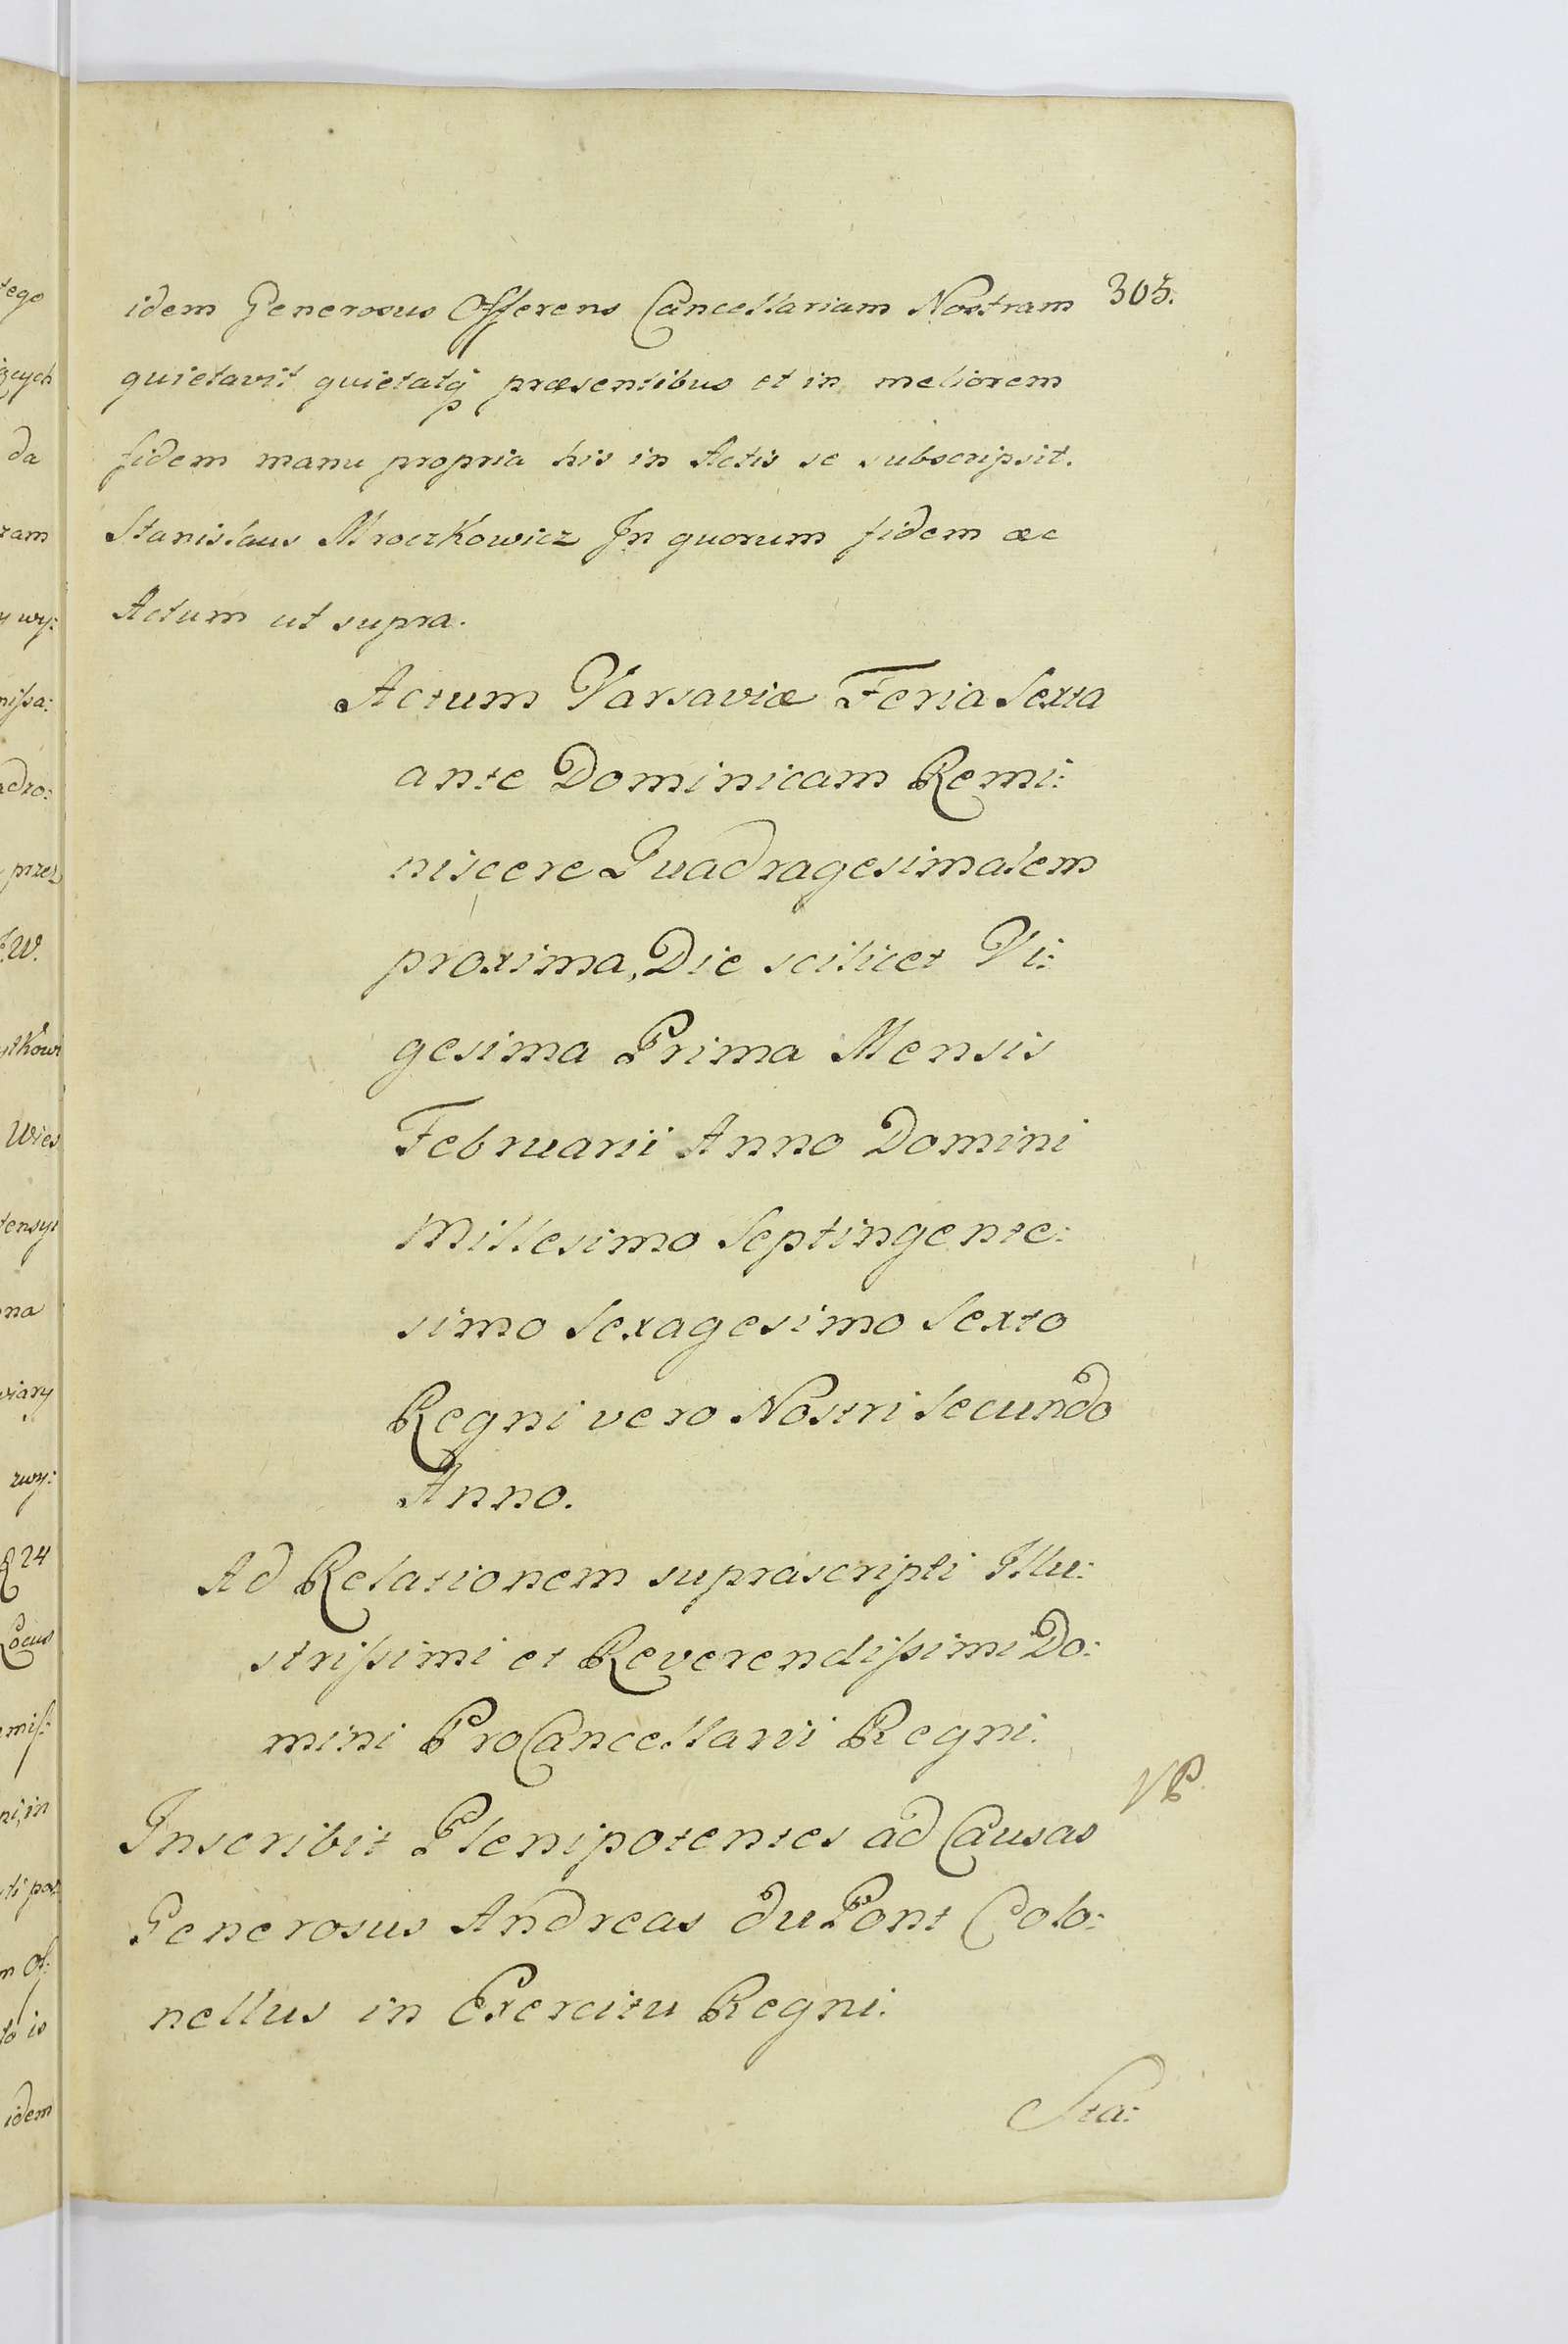 305.
idem Generosus Offerens Cancellariam Nostram
quietavit quietatq præsentibus et in meliorem
fidem manu propria his in Actis se subscripsit.
Stanislaus Mroczkowicz In quorum fidem æc
Actum ut supra.
Actum Varsaviæ Feria Sexta
ante Dominicam Remi:
niscere Quadragesimalem
proxima, Die scilicet Vi:
gesima Prima Mensis
Februarii Anno Domini
Millesimo Septingente:
simo Sexagesimo Sexto
Regni vero Nostri Secundo
Anno.
Ad Relationem supráscripti Illu:
strißimi et Reverendißimi Do:
mini ProCancellarii Regni.
Inscribit Plenipotentes ad Causas
Generosus Andreas du Pont Colo:
nellus in Exercitu Regni.
Sta:
tego
da
ram
y wy:
nißa:
adro:
przez
wy:
24
Locus
ni, in
to is
idem